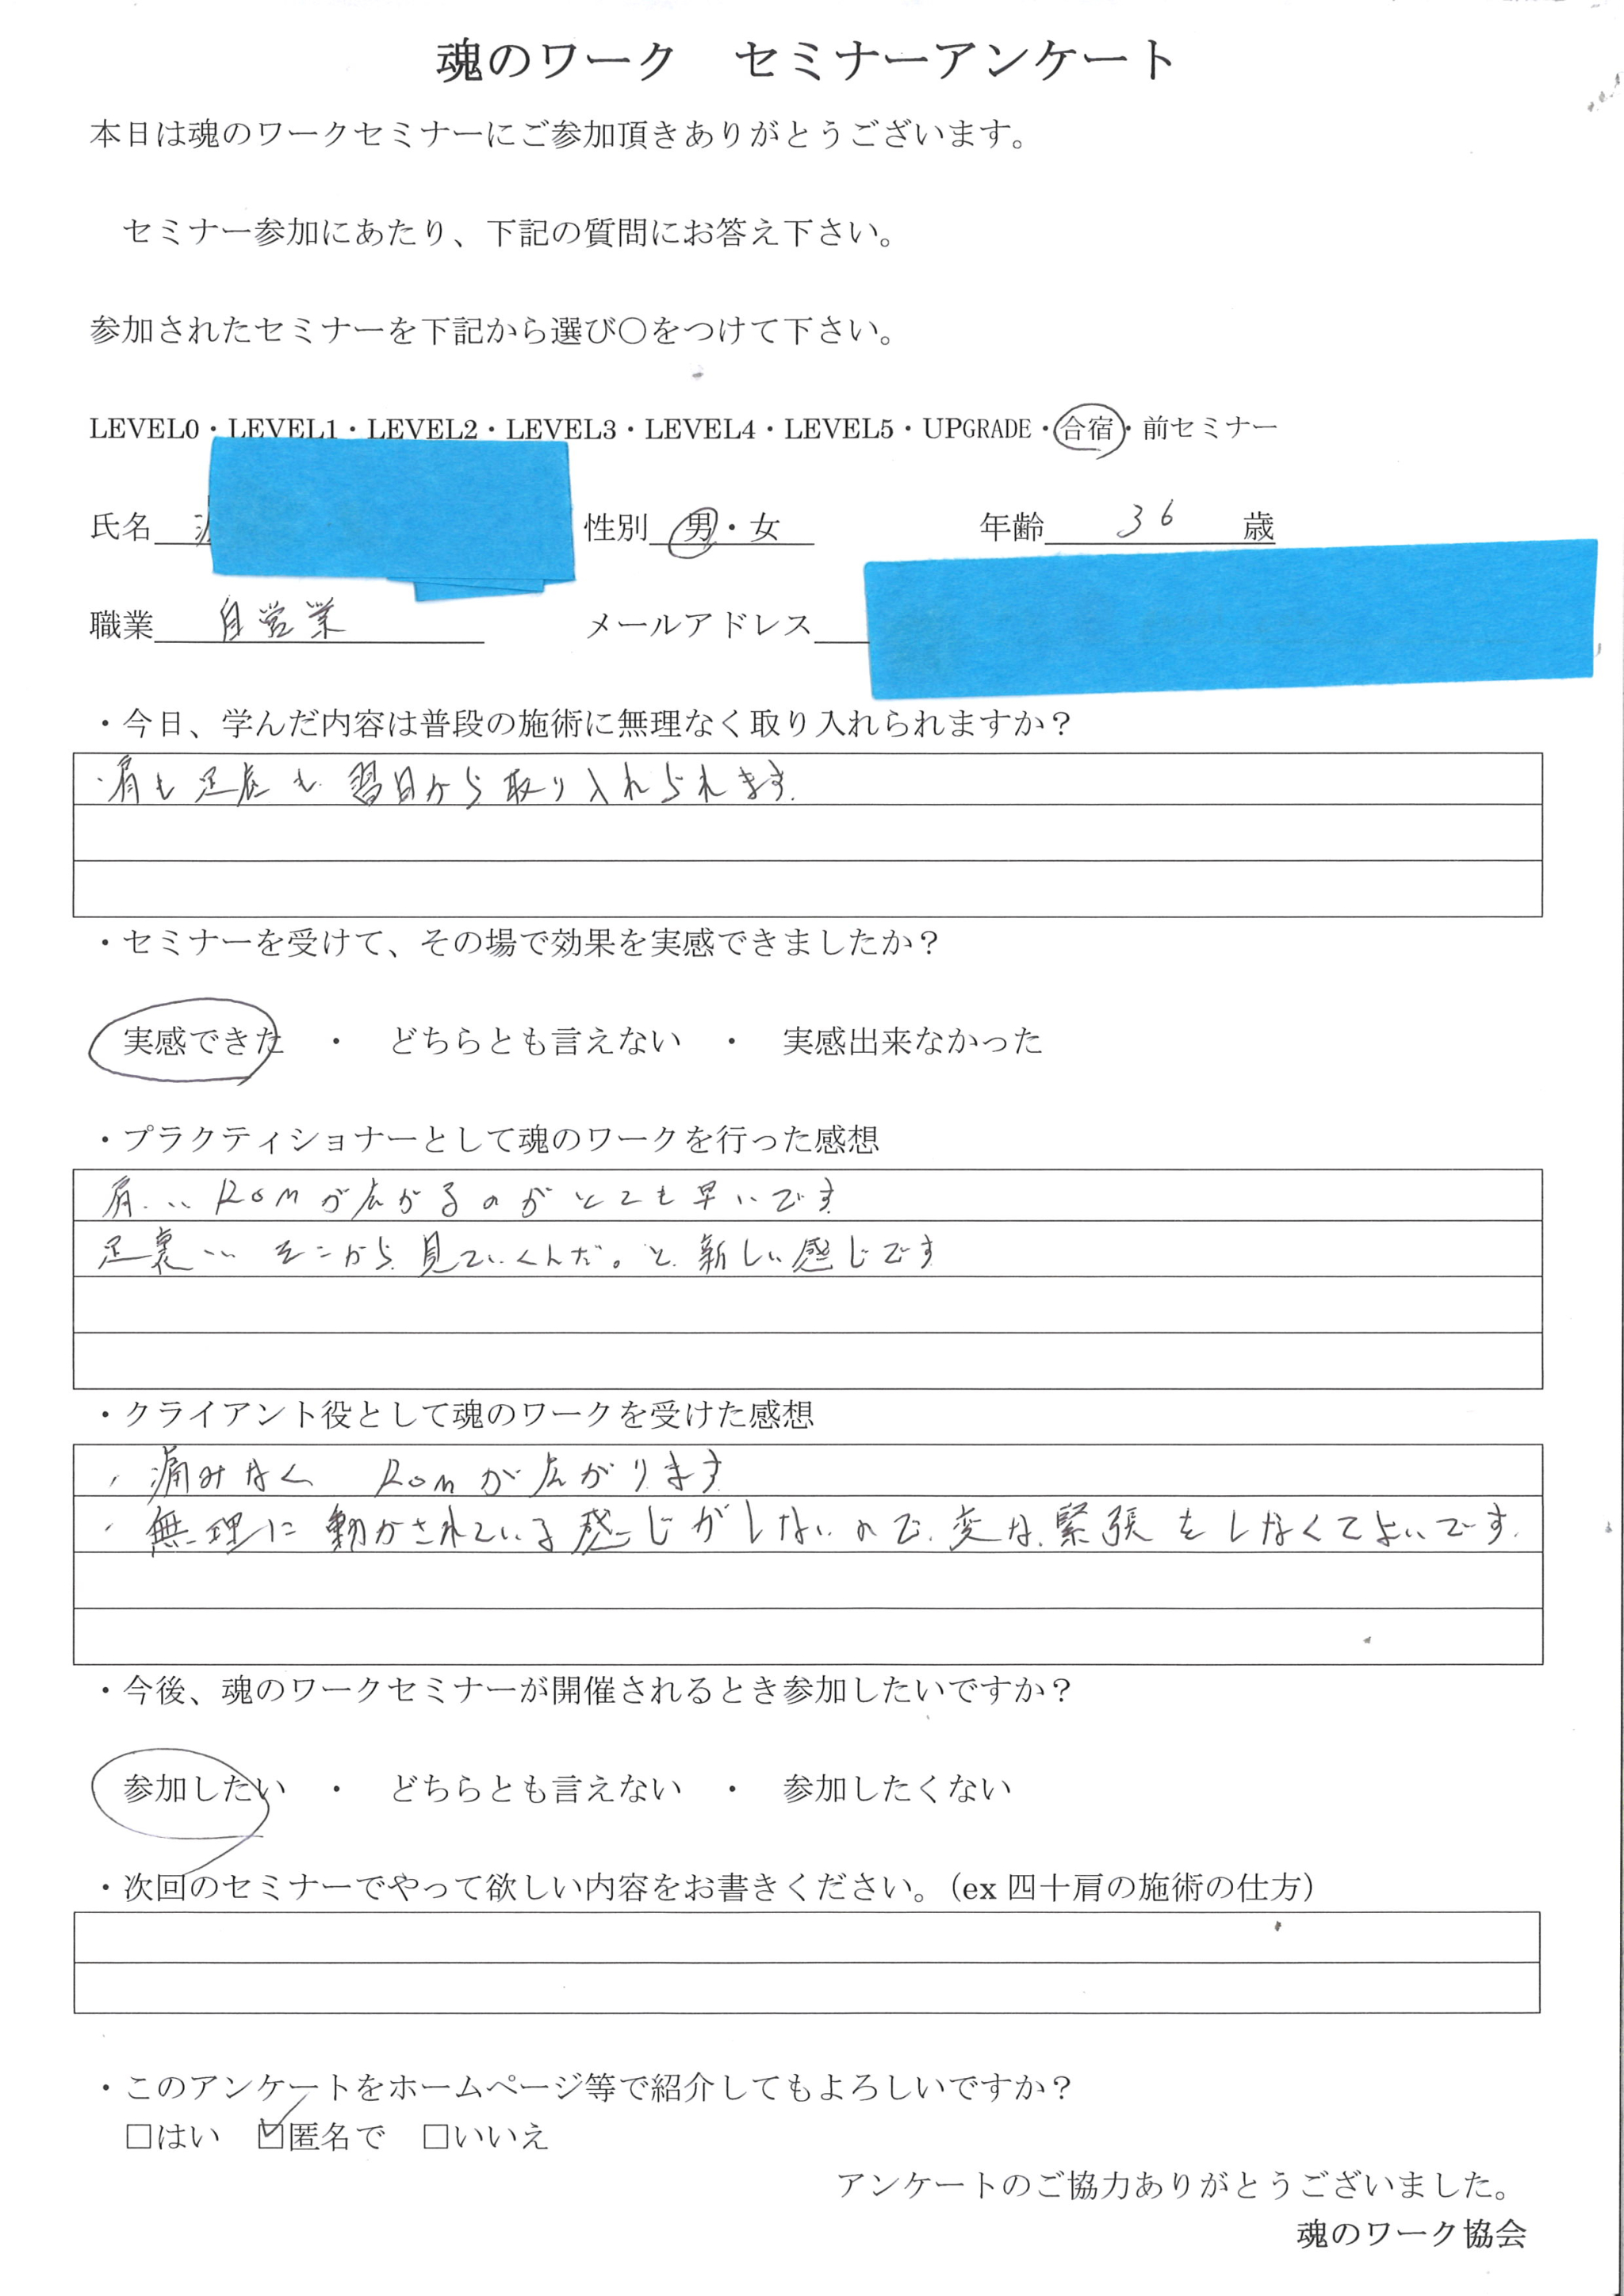 魂のワーク　セミナーアンケート
本日は魂のワークセミナーにご参加頂きありがとうございます。
セミナー参加にあたり、下記の質問にお答え下さい。
参加されたセミナーを下記から選び〇をつけて下さい。
LEVEL0・LEVEL1・LEVEL2・LEVEL3・LEVEL4・LEVEL5・UPGRADE・合宿・前セミナー
氏名 性別 男・女 年齢 36 歳
職業 自営業 メールアドレス
・今日、学んだ内容は普段の施術に無理なく取り入れられますか？
・肩も足底も 翌日から取り入れられます.
・セミナーを受けて、その場で効果を実感できましたか？
実感できた　・　どちらとも言えない　・　実感出来なかった
・プラクティショナーとして魂のワークを行った感想
肩… ROMが広がるのがとても早いです
足裏… そこから見ていくんだ。と新しい感じです
・クライアント役として魂のワークを受けた感想
・痛みなく ROMが広がります
・無理に動かされている感じがしないので、変な緊張をしなくてよいです.
・今後、魂のワークセミナーが開催されるとき参加したいですか？
参加したい　・　どちらとも言えない　・　参加したくない
・次回のセミナーでやって欲しい内容をお書きください。（ex 四十肩の施術の仕方）
・このアンケートをホームページ等で紹介してもよろしいですか？
□はい　☑匿名で　□いいえ
アンケートのご協力ありがとうございました。
魂のワーク協会